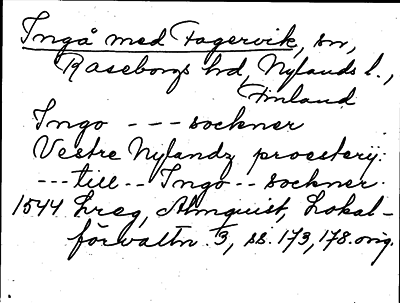 Ingå med Fagervik, sn,
Raseborgs hd, Nylands l.,
Finland
Ingo --- sockner
Vestre Nylandz proesterij:
---till-- Ingo-- sockner.
1544 Lreg, Almquist, Lokal-
förvaltn. 3, ss. 173, 178. orig.